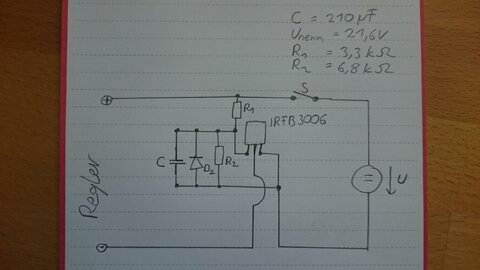 C = 210 µF
Unenn = 21,6V
R1 = 3,3 kΩ
R2 = 6,8 kΩ
S
+
R1
IRFB3006
C
D2
R2
= ↓U
Regler
-